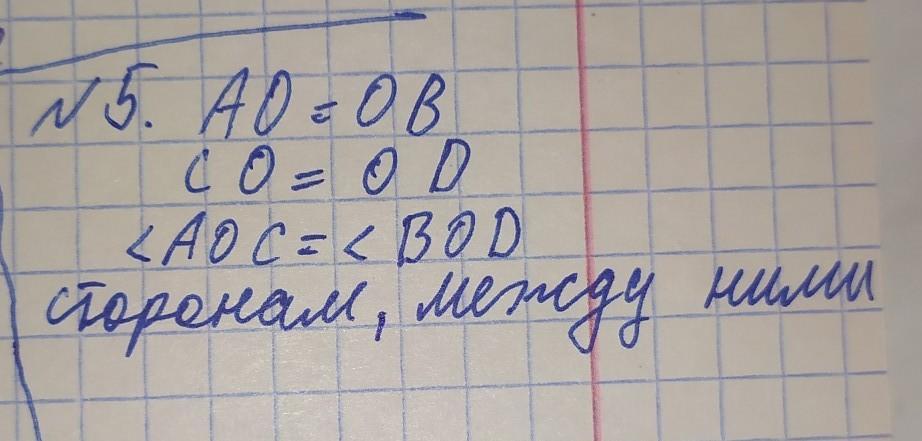 №5. AO = OB
CO = OD
<AOC = <BOD
сторонам, между ними